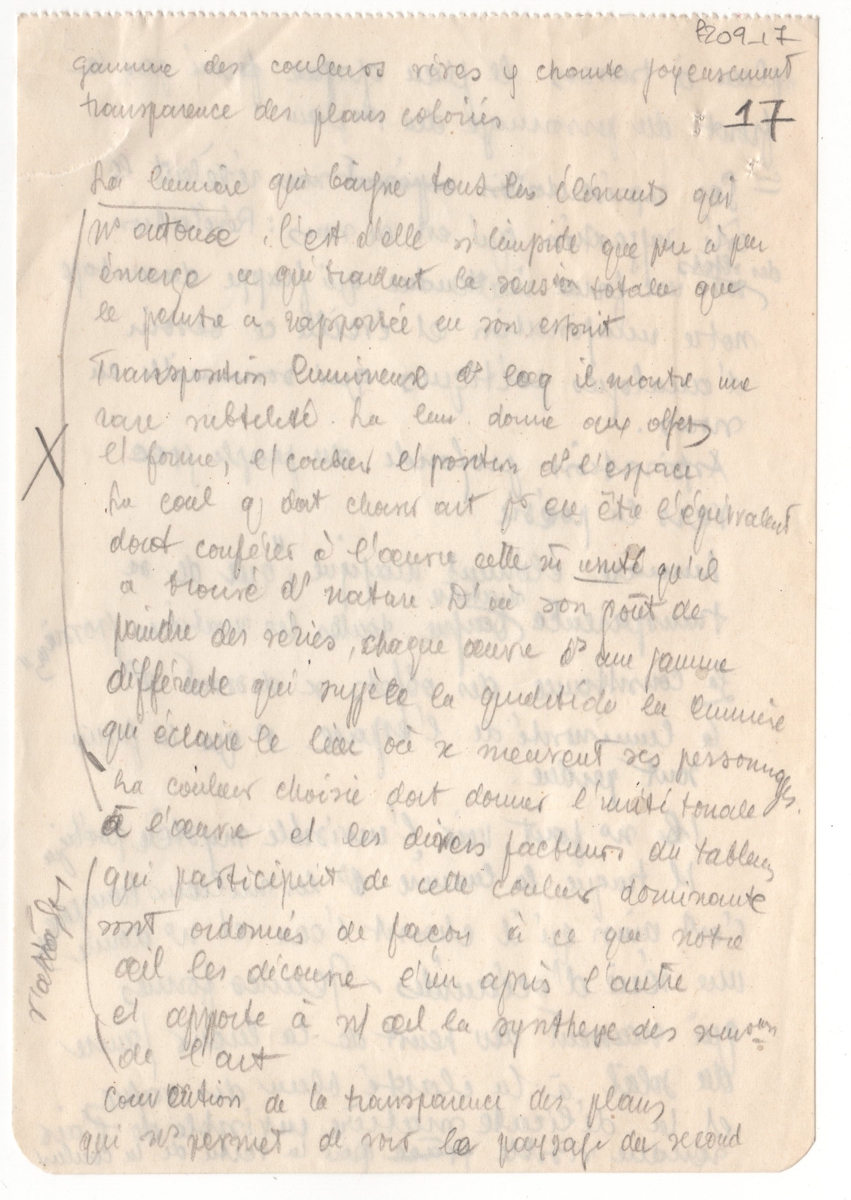 f209_17
gamme des couleurs vives y chante joyeusement
transparence des plans coloriés
17
La lumière qui baigne tous les éléments qui
ns entoure. C'est d'elle si limpide que peu à peu
émerge ce qui traduit la totale que
le peintre a rapportée en son esprit
Transposition lumineuse ds il montre une
rare subtilité. La lum. donne aux objets
et forme, et couleur et position ds l'espace
La coul q doit choisir art pr en être l'équivalent
doit conférer à l'œuvre cette m unité qu'il
a trouvé ds nature. D'où son goût de
peindre des series, chaque œuvre ds une gamme
différente qui suggère la qualité de la lumière
qui éclaire le lieu où se meuvent ses personnages.
La couleur choisie doit donner l'unité tonale
à l'œuvre et les divers facteurs du tableau
qui participent de cette couleur dominante
sont ordonnés de façon à ce que notre
œil les découvre l'un après l'autre
et apporte à œil la synthese des
de l'art
Convention de la transparence des plans
qui ns permet de voir le paysage du second